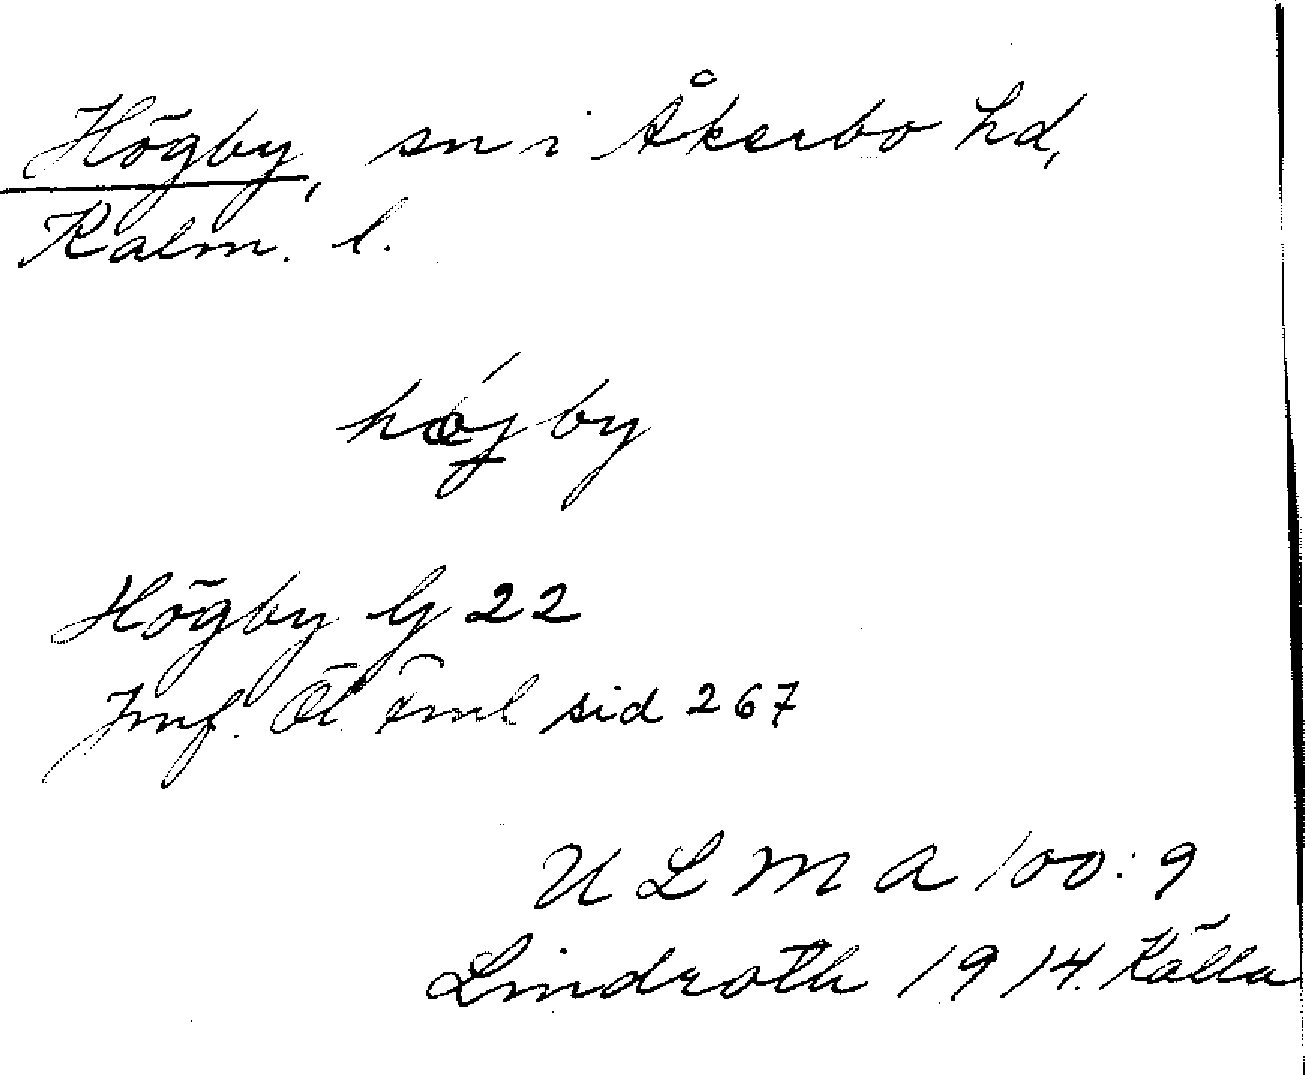 Högby, sn i Åkerbo hd,
Kalm. l.
højby
Högby G 22
Jmf. Öl. Fml sid 267
ULMA 100:9
Lindroth 1914. Källa